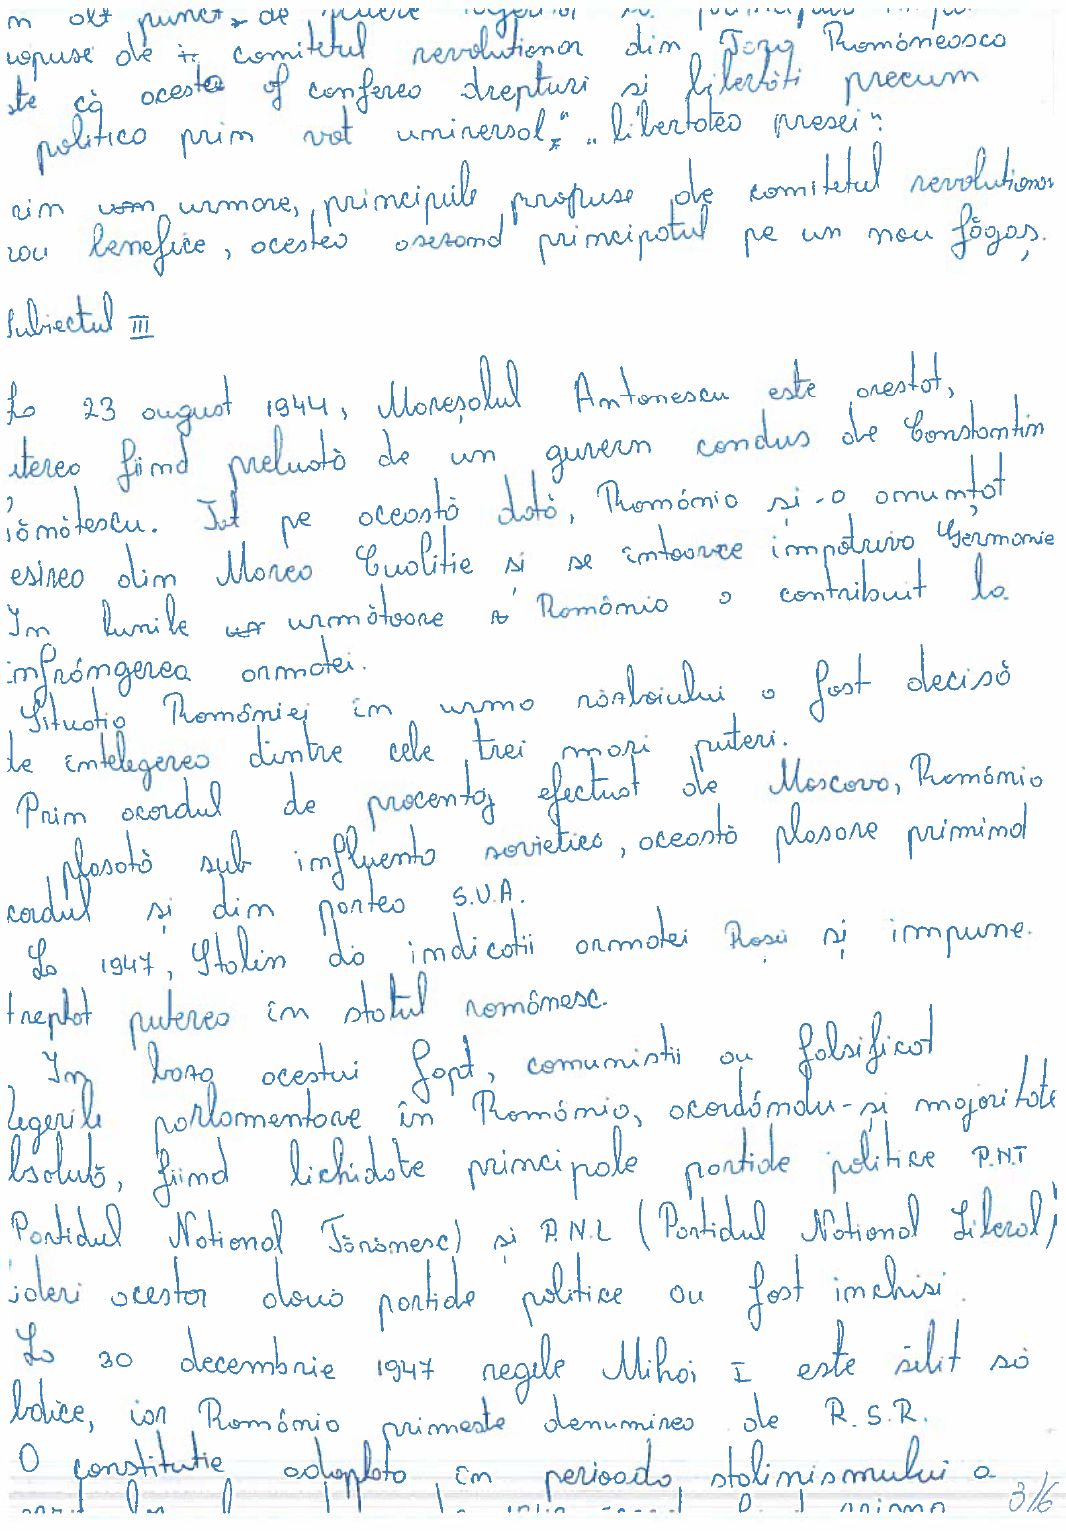 alt punct de vedere
de comitetul revolutionar din Tara Româneasca
te că acestea of conferea drepturi si libertăti precum
politica prin vot universal," "libertatea presei".
rin urmare, principiile propuse de comitetul revolutionar
rau benefice, acestea asezand principatul pe un nou făgaș.
Subiectul III
La 23 august 1944, Mareșalul Antonescu este arestat,
uterea fiind preluată de un guvern condus de Constantin
ănătescu. Tot pe această dată, România și-a anunțat
esirea din Marea Cualitie si se întoarce împotriva Germanie
In lunile următoare România a contribuit la
infrângerea armatei.
Situatia României în urma războiului a fost decisă
de întelegerea dintre cele trei mari puteri.
Prin acordul de procentaj efectuat de Moscova, România
plasată sub influenta sovietica, această plasare primind
cordul și din partea S.U.A.
La 1947, Stalin dă indicatii armatei Roșii și impune
treptat puterea în statul românesc.
In baza acestui fapt, comunistii au falsificat
legerile parlamentare în România, acordându-și majoritate
bsolută, fiind lichidate principale partide politice P.N.T
Partidul National Tărănesc) și P.N.L (Partidul National Liberal)
ideri acestor două partide politice au fost inchisi.
La 30 decembrie 1947 regele Mihai I este silit să
bdice, iar România primeste denumirea de R.S.R.
O constitutie adoptata în perioada stalinismului a
3/6